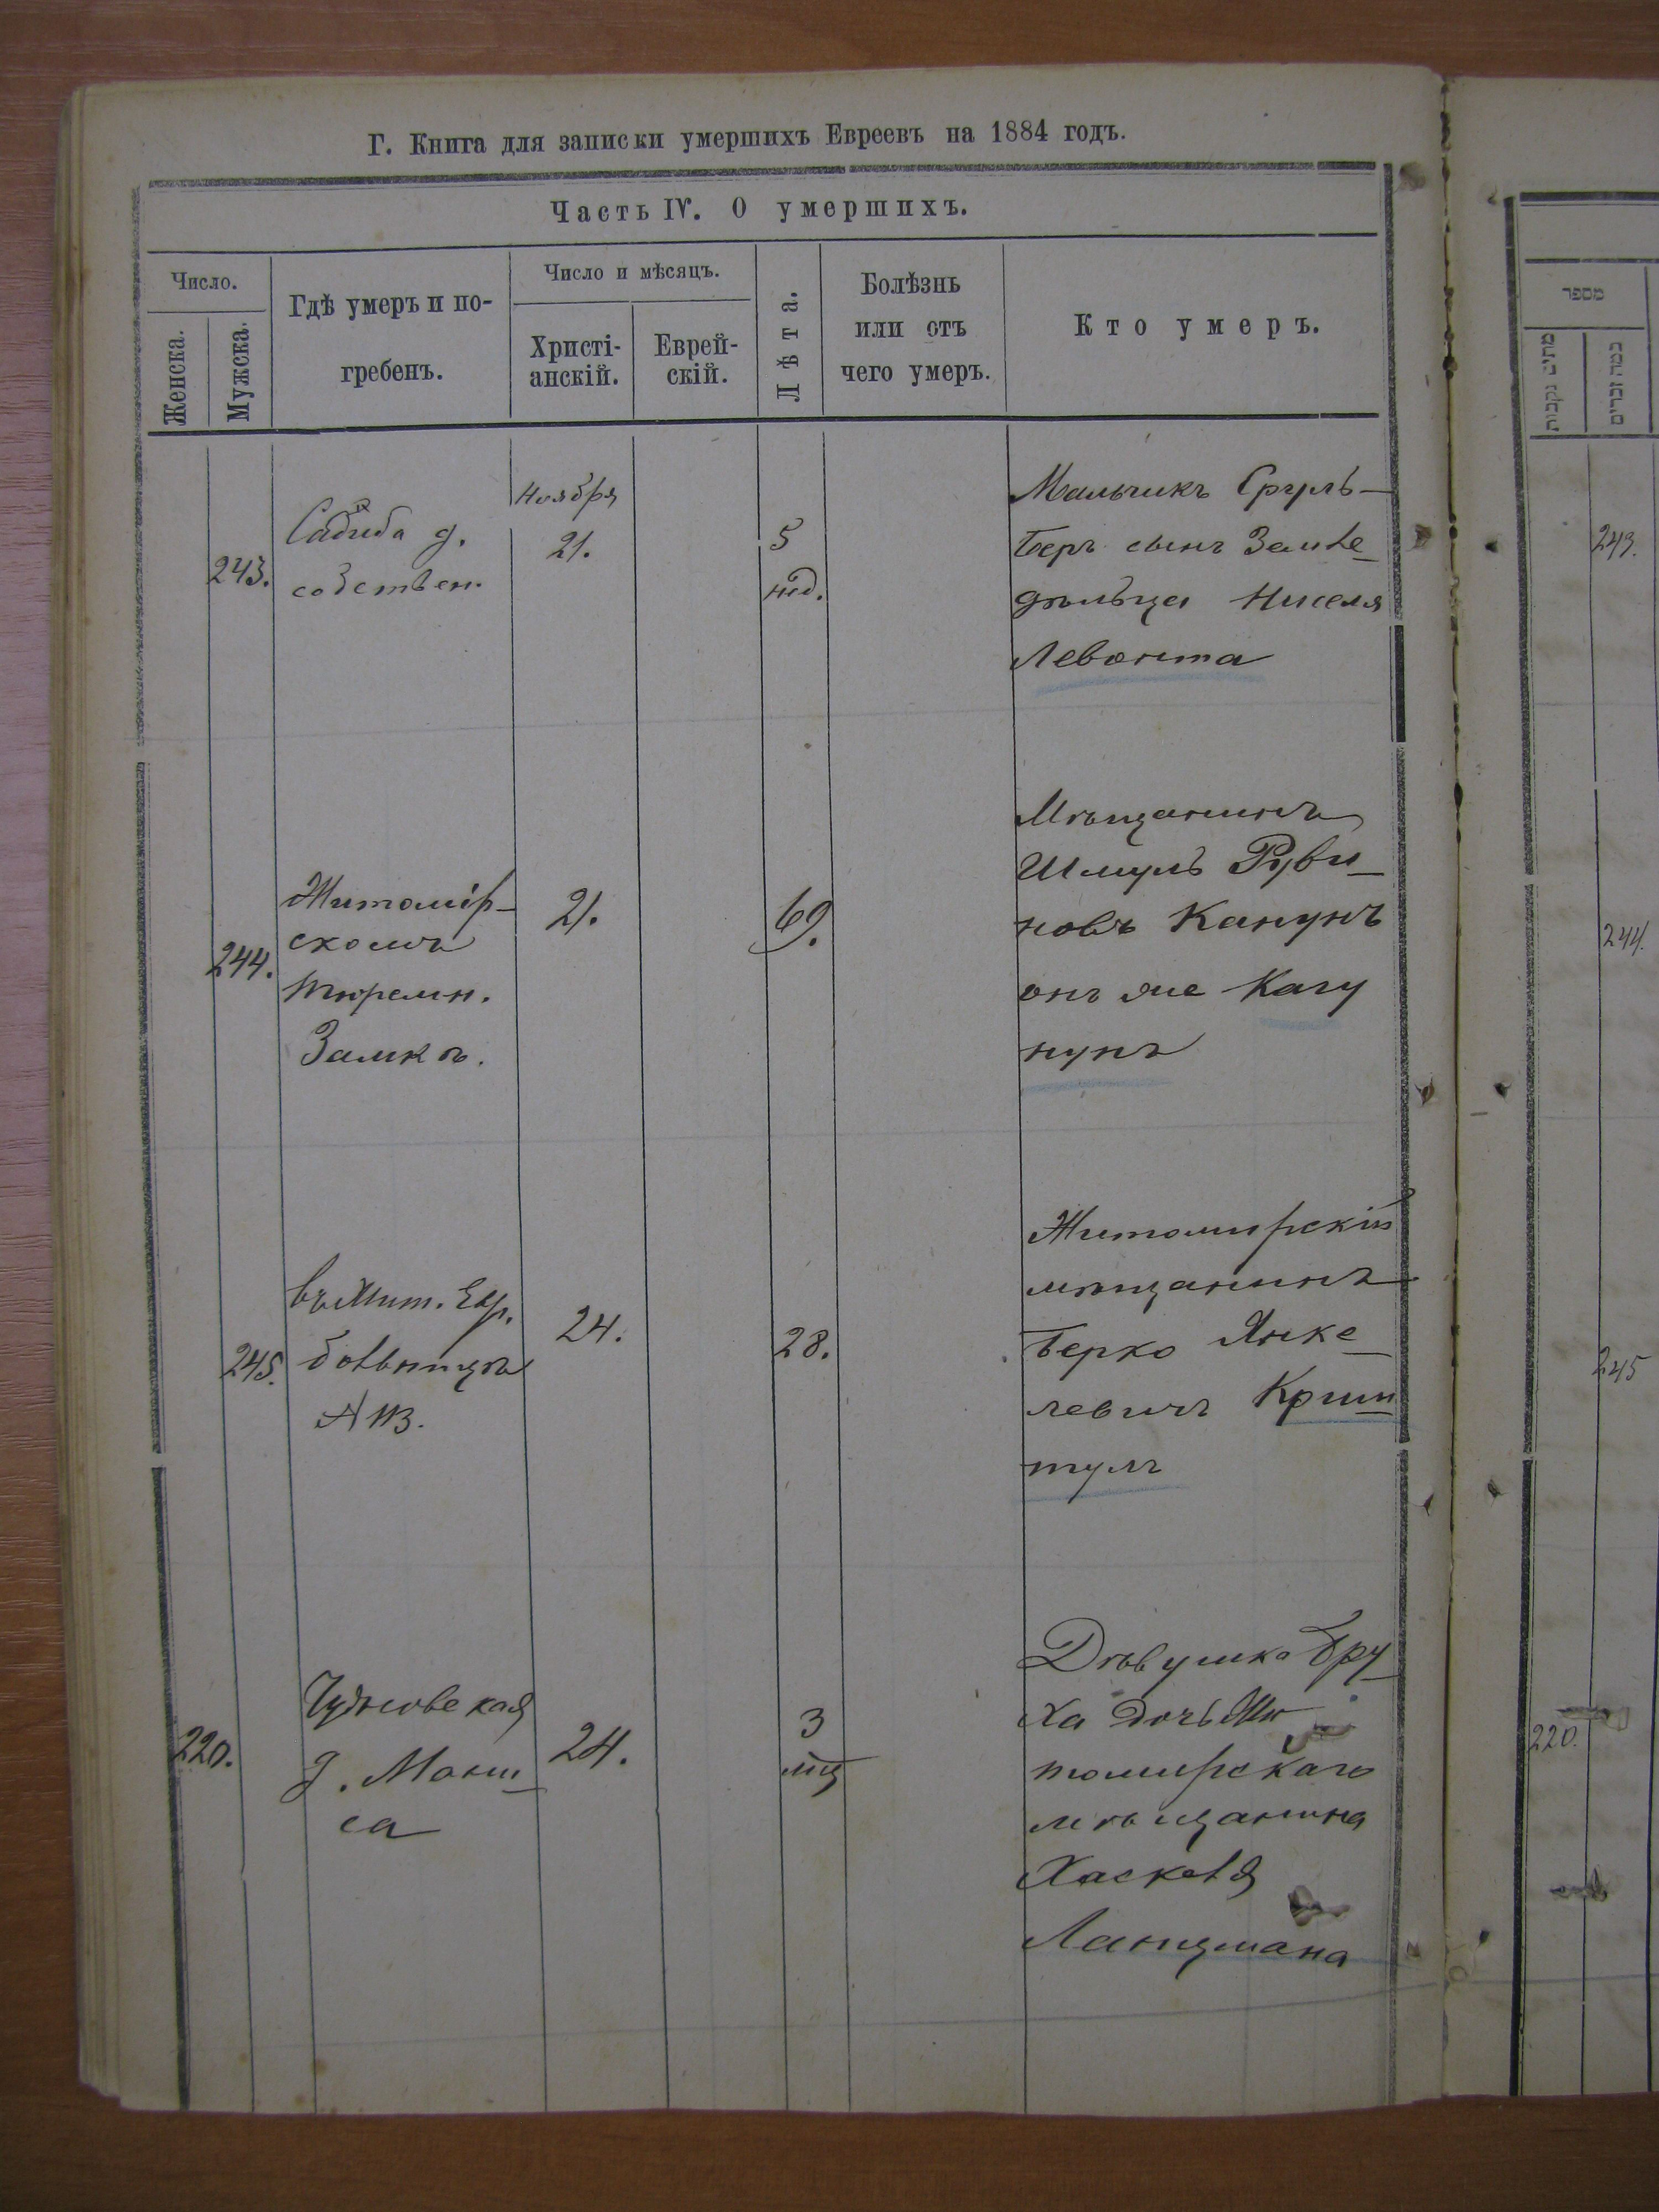 Г. Книга для записки умершихъ Евреевъ на 1884 годъ.
Часть IV. О умершихъ.
Число.
Женска.
Мужска.
Гдѣ умеръ и по-
гребенъ.
Число и мѣсяцъ.
Христі-
анскій.
Еврей-
скій.
Лѣта.
Болѣзнь
или отъ
чего умеръ.
Кто умеръ.
243.
д.
собствен.
Ноября
21.
5
нед.
Мальчикъ Сруль-
Беръ сынъ Земле
дѣльца Ниселя
Левонта
244.
Житомір-
скомъ
тюремн.
Замкѣ.
21.
69.
Мѣщанинъ
Шмуль Руви
новъ Канунъ
онъ же Кагу
нунъ
245.
въ Жит. Евр.
больницѣ
24.
28.
Житомирскій
мѣщанинъ
Берко Янке
левичъ Криш
тулъ
220.
Чудновская
д. Мани
са
24.
3
мц
Дѣвушка Бру
ха дочь Жи
томирскаго
мѣщанина
Хаскеля
Ланцмана
מספר
מתים נקבות
כמה זכרים
243.
244.
245
220.